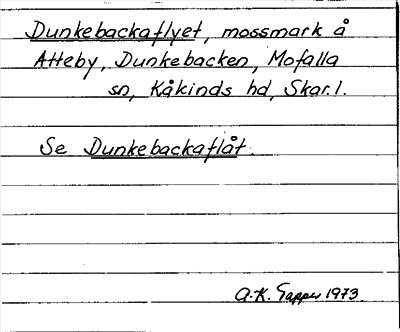 Dunkebackaflyet, mossmark å
Atteby, Dunkebacken, Mofalla
sn, Kåkinds hd, Skar. l.
Se Dunkebackaflåt.
A.K. 1973